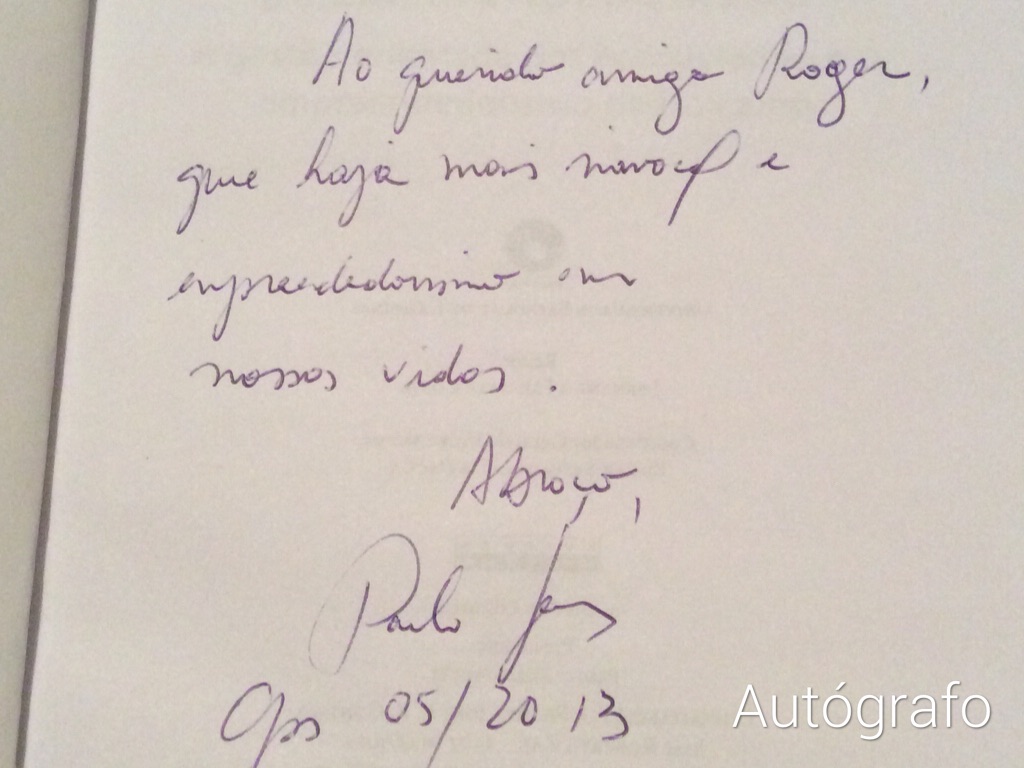 Ao querido amigo Roger,
que haja mais inovação e
empreendedorismo em
nossas vidas.
Abraço,
Paulo
05/2013
Autógrafo